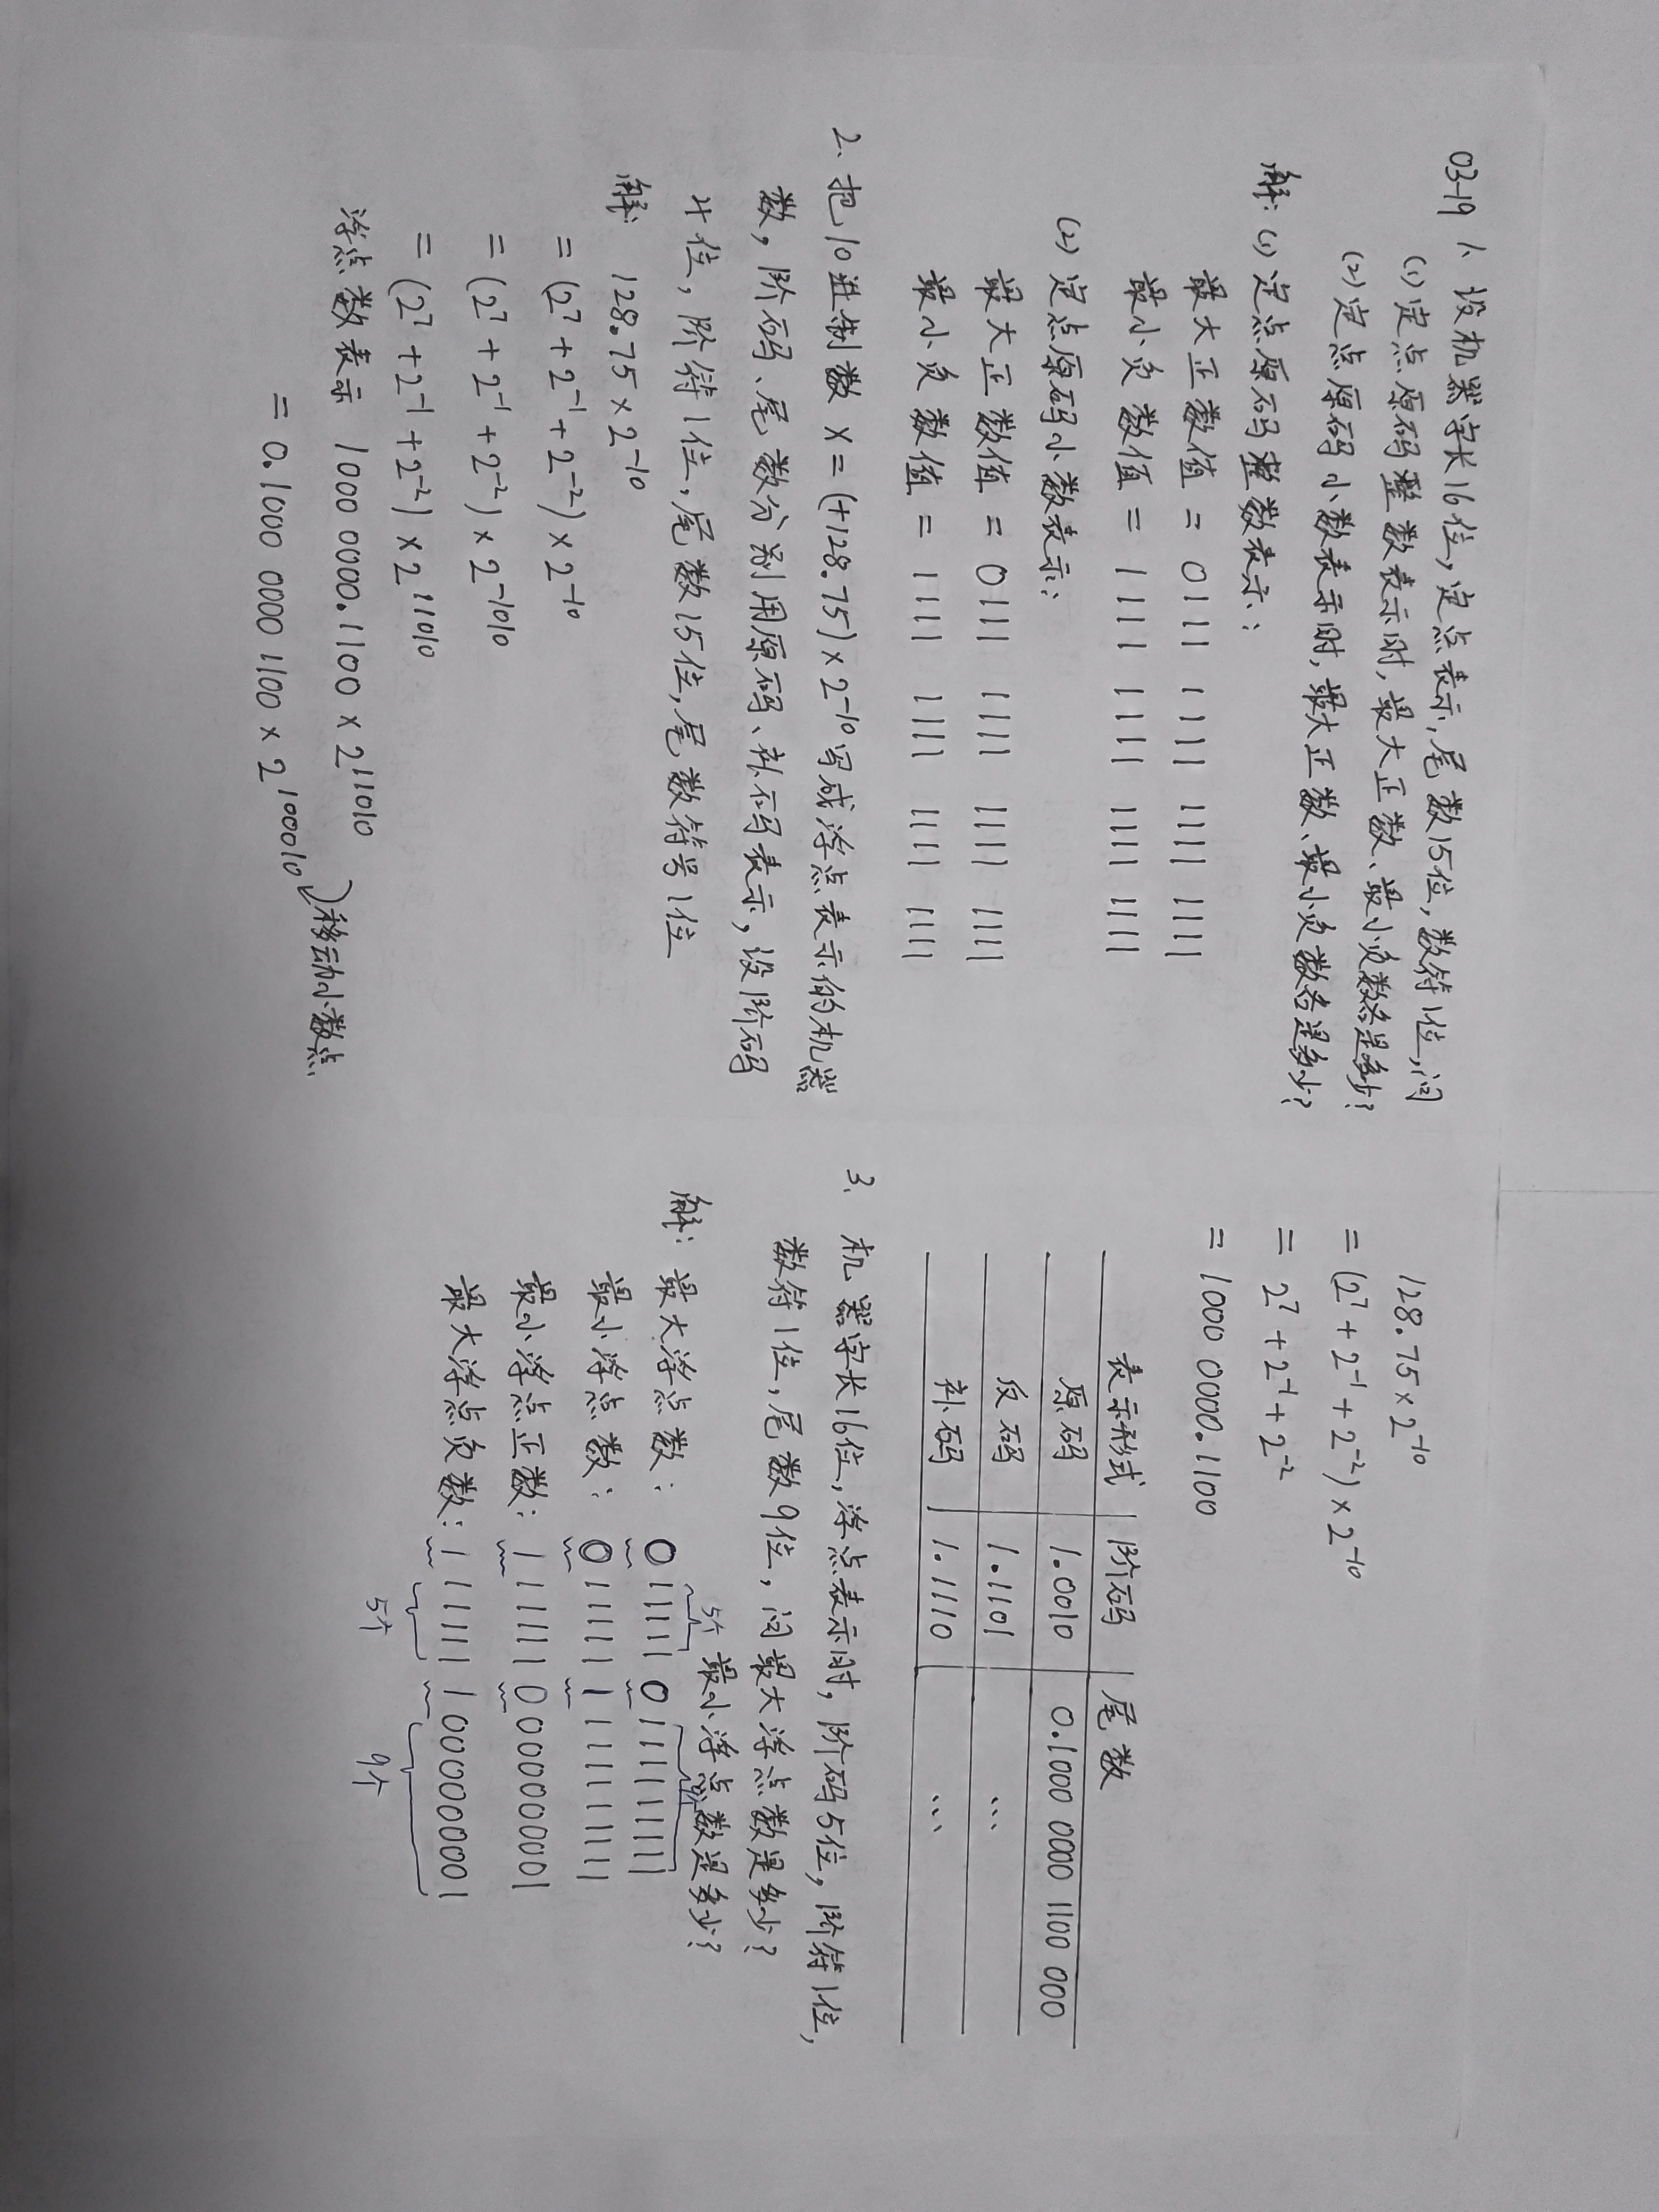 03-19 1、设机器字长16位,定点表示,尾数15位,数符1位,问
(1)定点原码整数表示时,最大正数、最小负数各是多少?
(2)定点原码小数表示时,最大正数、最小负数各是多少?
解:(1)定点原码整数表示:
最大正数值 = 0111 1111 1111 1111
最小负数值 = 1111 1111 1111 1111
(2)定点原码小数表示:
最大正数值 = 0111 1111 1111 1111
最小负数值 = 1111 1111 1111 1111
2. 把10进制数 X=(+128.75)×2⁻¹⁰写成浮点表示的机器
数,阶码、尾数分别用原码、补码表示,设阶码
4位,阶符1位,尾数15位,尾数符号1位
解: 128.75×2⁻¹⁰
= (2⁷+2⁻¹+2⁻²)×2⁻¹⁰
= (2⁷+2⁻¹+2⁻²)×2⁻¹⁰¹⁰
= (2⁷+2⁻¹+2⁻²)×2¹¹⁰¹⁰
浮点数表示 1000 0000.1100 × 2¹¹⁰¹⁰
移动小数点
= 0.1000 0000 1100 × 2¹⁰⁰⁰¹⁰
128.75×2⁻¹⁰
= (2⁷+2⁻¹+2⁻²)×2⁻¹⁰
= 2⁷+2⁻¹+2⁻²
= 1000 0000.1100
表示形式 阶码 尾数
原码 1.0010 0.1000 0000 1100 000
反码 1.1101 ...
补码 1.1110 ...
3、机器字长16位,浮点表示时,阶码5位,阶符1位,
数符1位,尾数9位,问最大浮点数是多少?
最小浮点数是多少?
5个 9个
解: 最大浮点数: 0 11111 0 111111111
最小浮点数: 0 11111 1 111111111
最小浮点正数: 1 11111 0 000000001
最大浮点负数: 1 11111 1 000000001
5个 9个